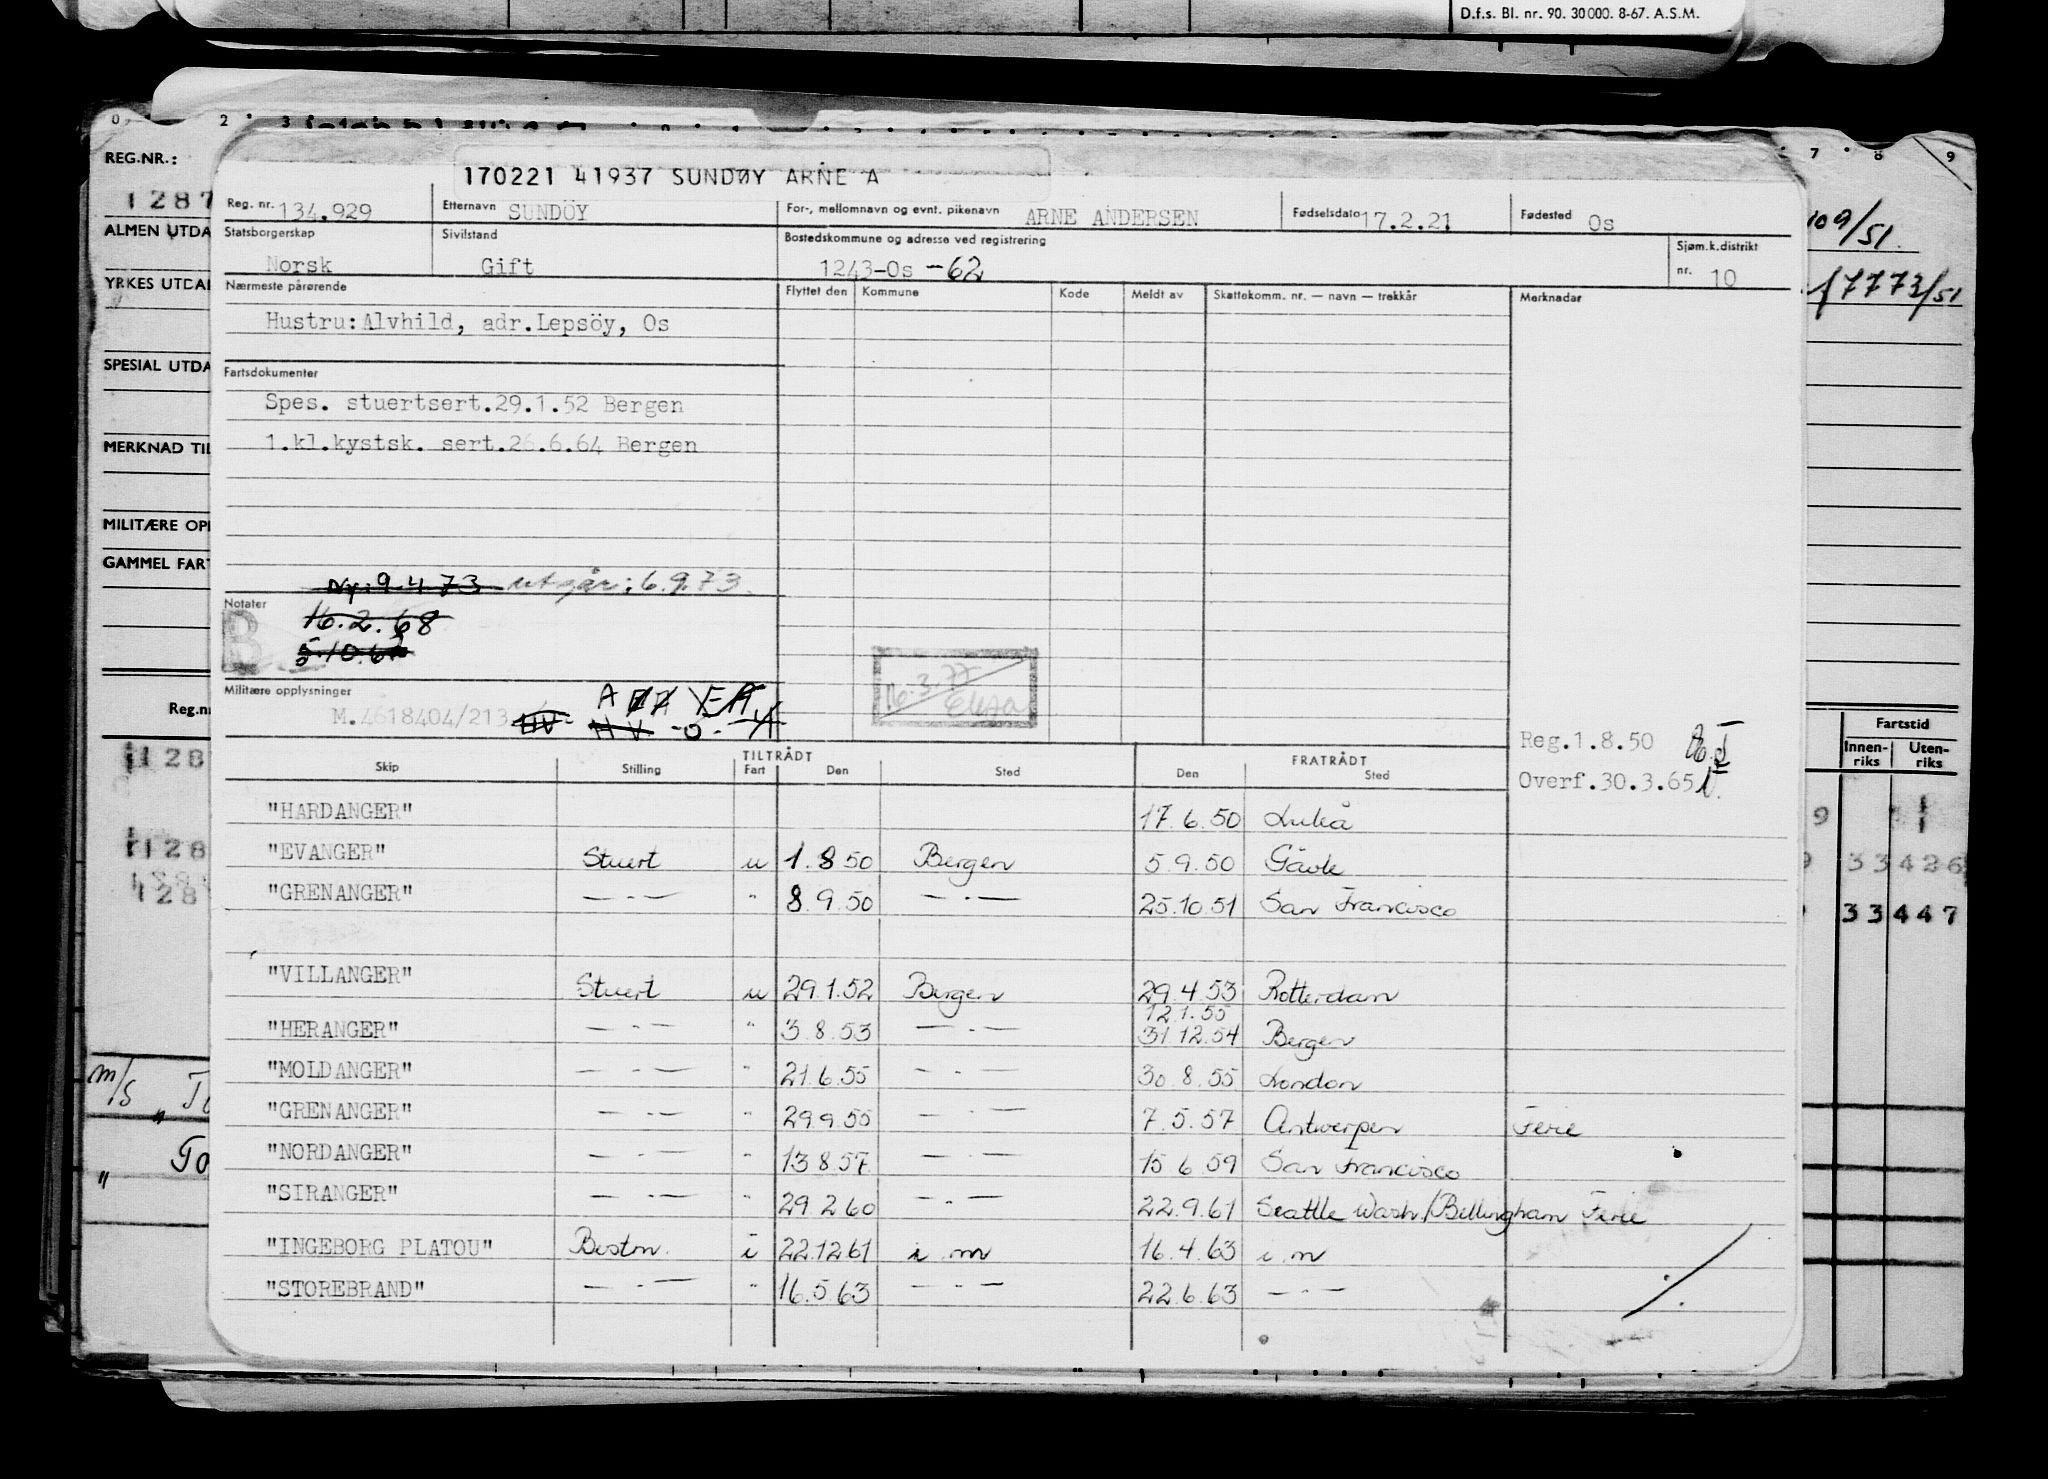 D.f.s. Bl. nr. 90. 30000. 8-67. A.S.M.
0 2 3 7 8 9
REG.NR.:
1287
ALMEN UTDA
YRKES UTDA
SPESIAL UTDA
MERKNAD TIL
MILITÆRE OP
GAMMEL FART
Reg.nr
109/51
7773/51
170221 41937 SUNDØY ARNE A
Reg. nr. 134.929 Etternavn SUNDÖY For-, mellomnavn og evnt. pikenavn ARNE ANDERSEN Fødselsdato 17.2.21 Fødested Os
Statsborgerskap Norsk Sivilstand Gift Bostedskommune og adresse ved registrering 1243-Os -62 Sjøm.k.distrikt nr. 10
Nærmeste pårørende Flyttet den Kommune Kode Meldt av Skattekomm. nr. — navn — trekkår Merknader
Hustru: Alvhild, adr. Lepsöy, Os
Fartsdokumenter
Spes. stuertsert. 29.1.52 Bergen
1.kl.kystsk. sert. 26.6.64 Bergen
Ny: 9.4.73 utgår: 6.9.73.
Notater
B
16.2.68
5.10.6
16.3.77
Militære opplysninger
M.4618404/213
Reg. 1.8.50
Overf. 30.3.65
Fartstid
Innen-riks Uten-riks
TILTRÅDT FRATRÅDT
Skip Stilling Fart Den Sted Den Sted
"HARDANGER" 17.6.50 Luleå
"EVANGER" Stuert u 1.8.50 Bergen 5.9.50 Gävle
"GRENANGER" — . — " 8.9.50 — . — 25.10.51 San Francisco
"VILLANGER" Stuert u 29.1.52 Bergen 29.4.53 Rotterdam
12.1.55
"HERANGER" — . — " 3.8.53 — . — 31.12.54 Bergen
"MOLDANGER" — . — " 21.6.55 — . — 30.8.55 London
"GRENANGER" — . — " 29.9.55 — . — 7.5.57 Antwerpen Ferie
"NORDANGER" — . — " 13.8.57 — . — 15.6.59 San Francisco
"SIRANGER" — . — " 29.2.60 — . — 22.9.61 Seattle Wash./Bellingham Ferie
"INGEBORG PLATOU" Bestm. i 22.12.61 i.m 16.4.63 i.m
"STOREBRAND" — . — " 16.5.63 — . — 22.6.63 — . —
1128
1128 33 426
128 33 447
m/s "To
" To